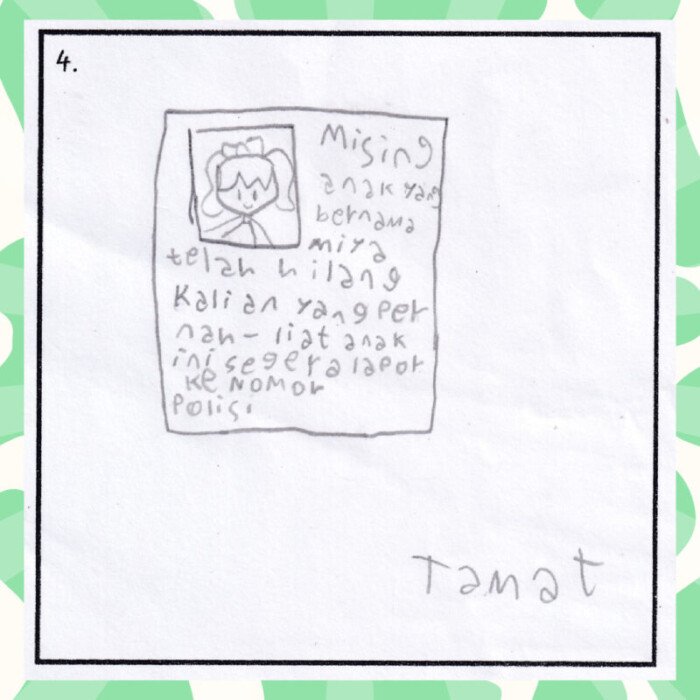 4.
Mising
anak yang
bernama
miya
telah hilang
Kalian yang per
nah - liat anak
ini segera lapor
ke Nomor
Polisi
Tamat